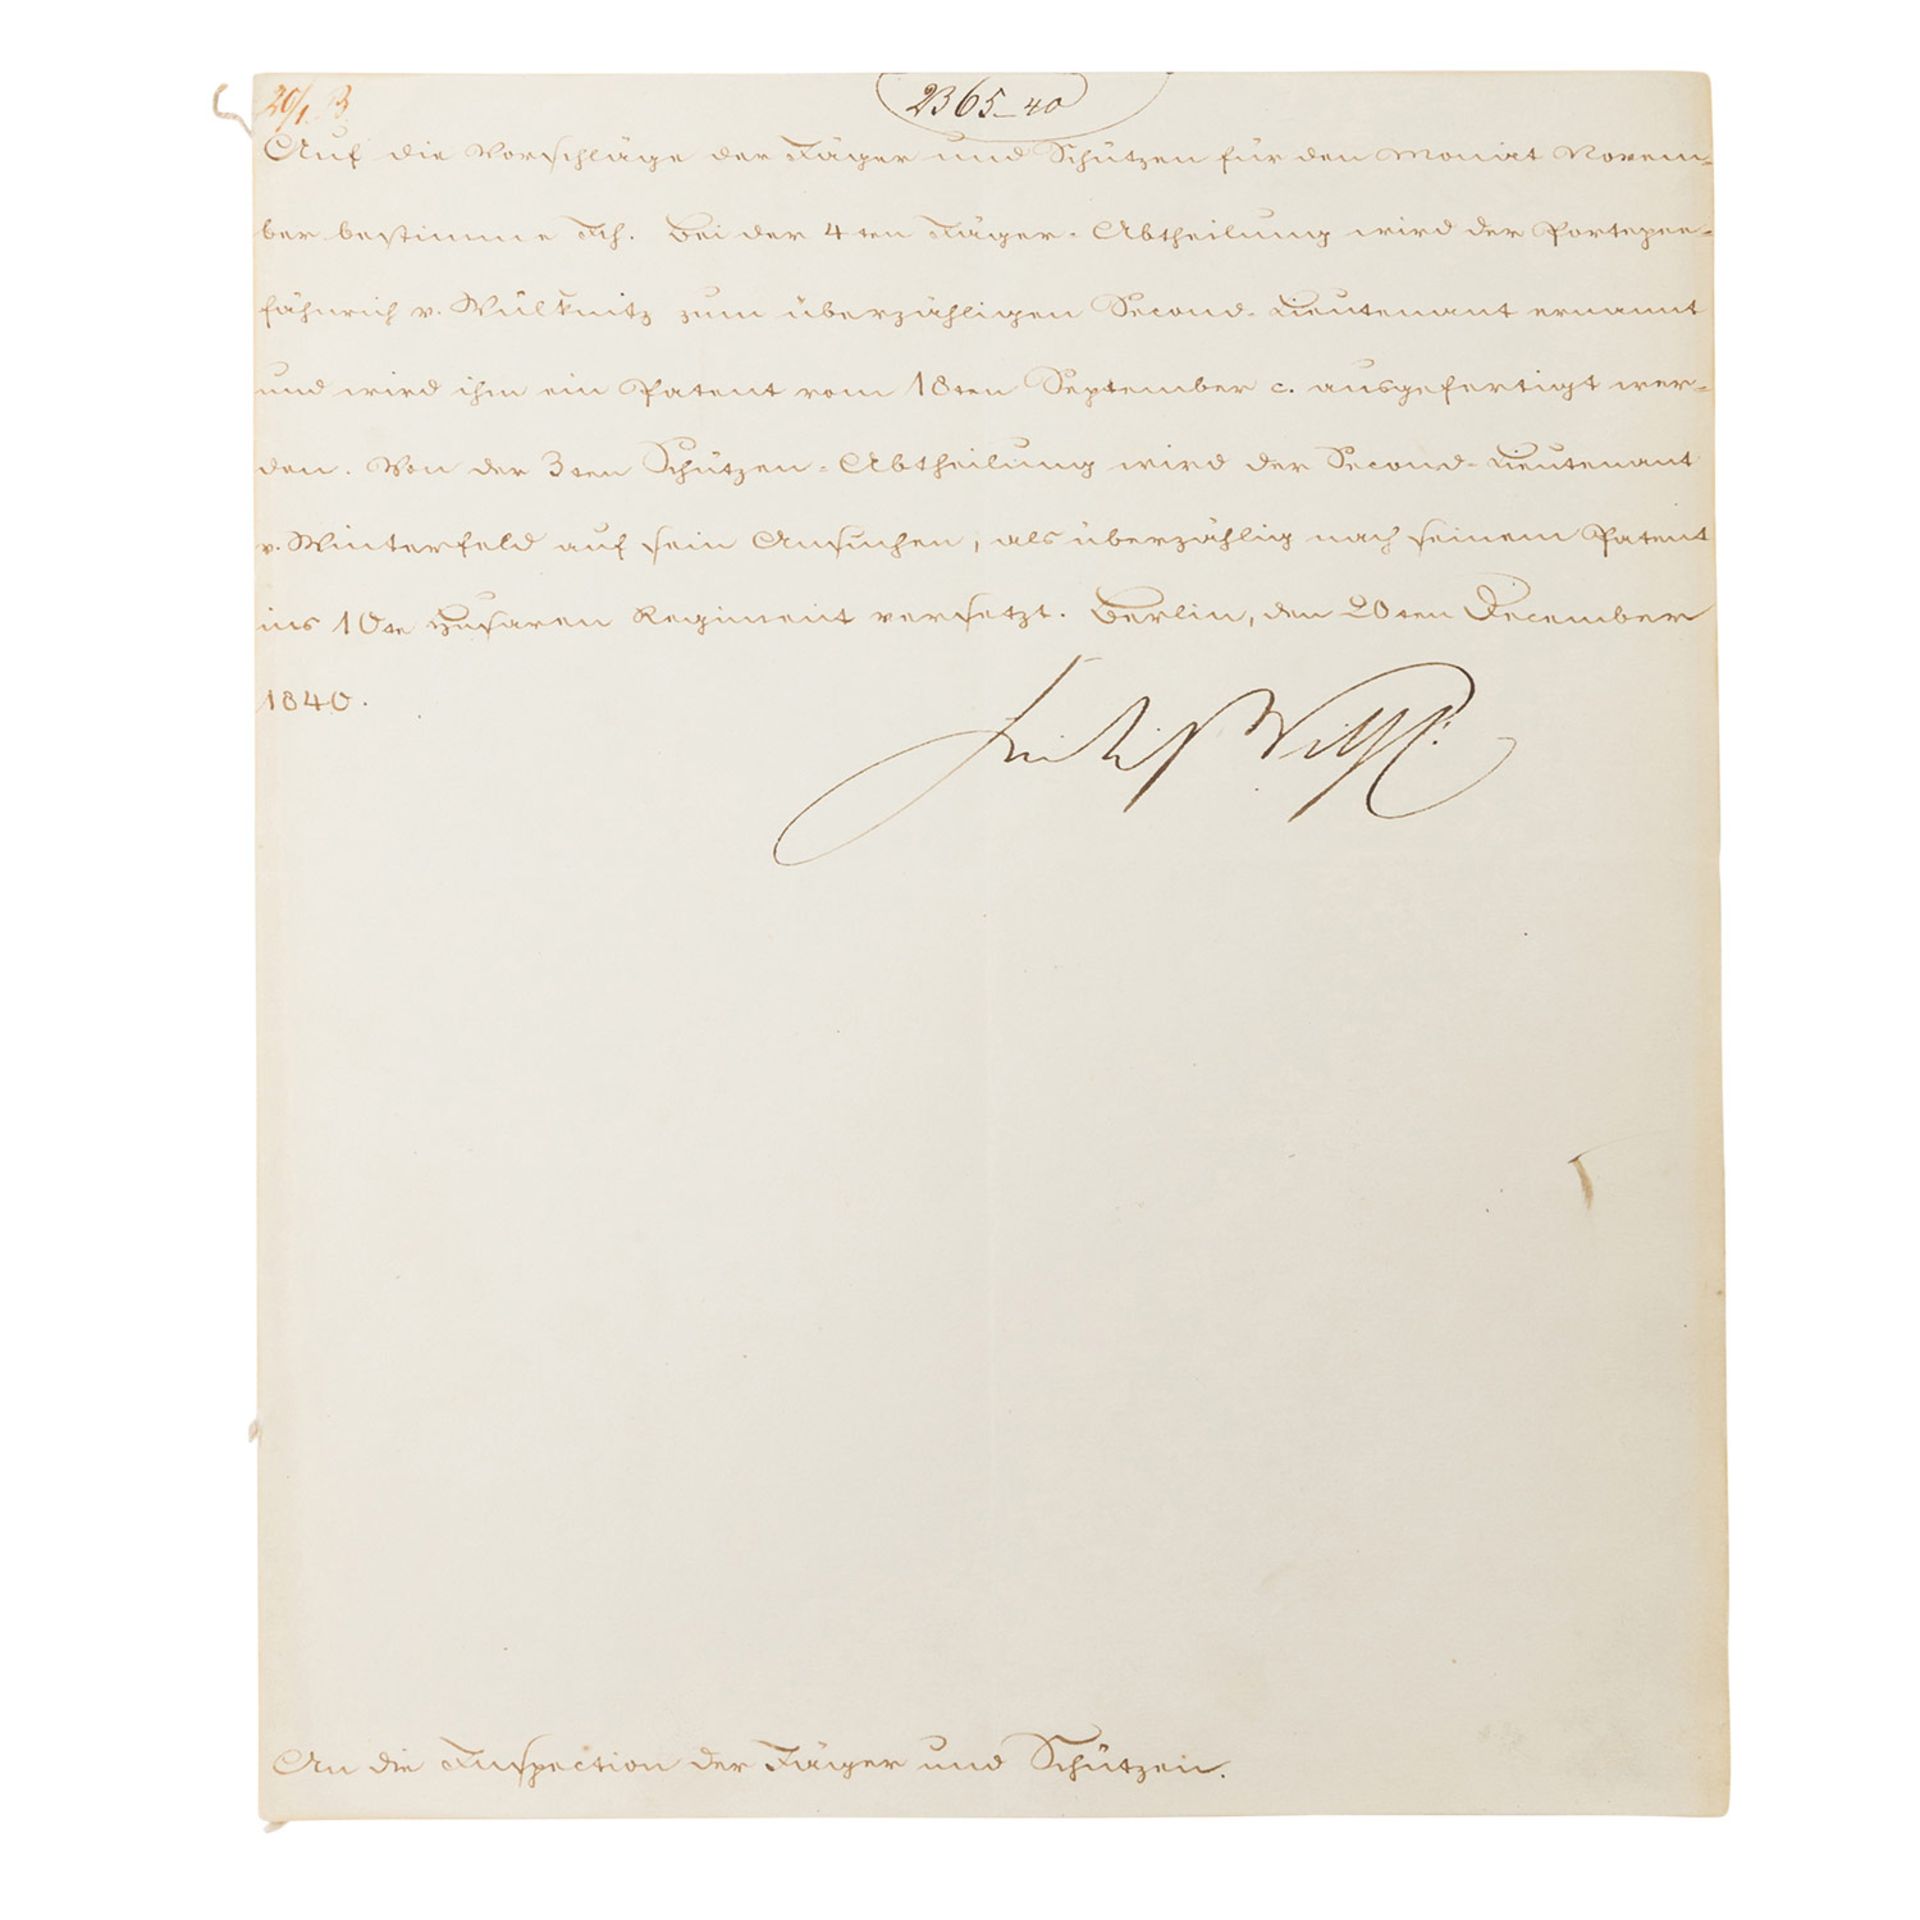 20/1. B.
2365_40
Auf die Vorschläge der Jäger und Schützen für den Monat Novem-
ber bestimme Ich. Bei der 4ten Jäger-Abtheilung wird der Portepee-
fähnrich v. Wülknitz zum überzähligen Second-Lieutenant ernannt
und wird ihm ein Patent vom 18ten September c. ausgefertigt wer-
den. Von der 3ten Schützen-Abtheilung wird der Second-Lieutenant
v. Winterfeld auf sein Ansuchen, als überzählig nach seinem Patent
ins 10te Husaren Regiment versetzt. Berlin, den 20ten December
1840.
An die Inspection der Jäger und Schützen.